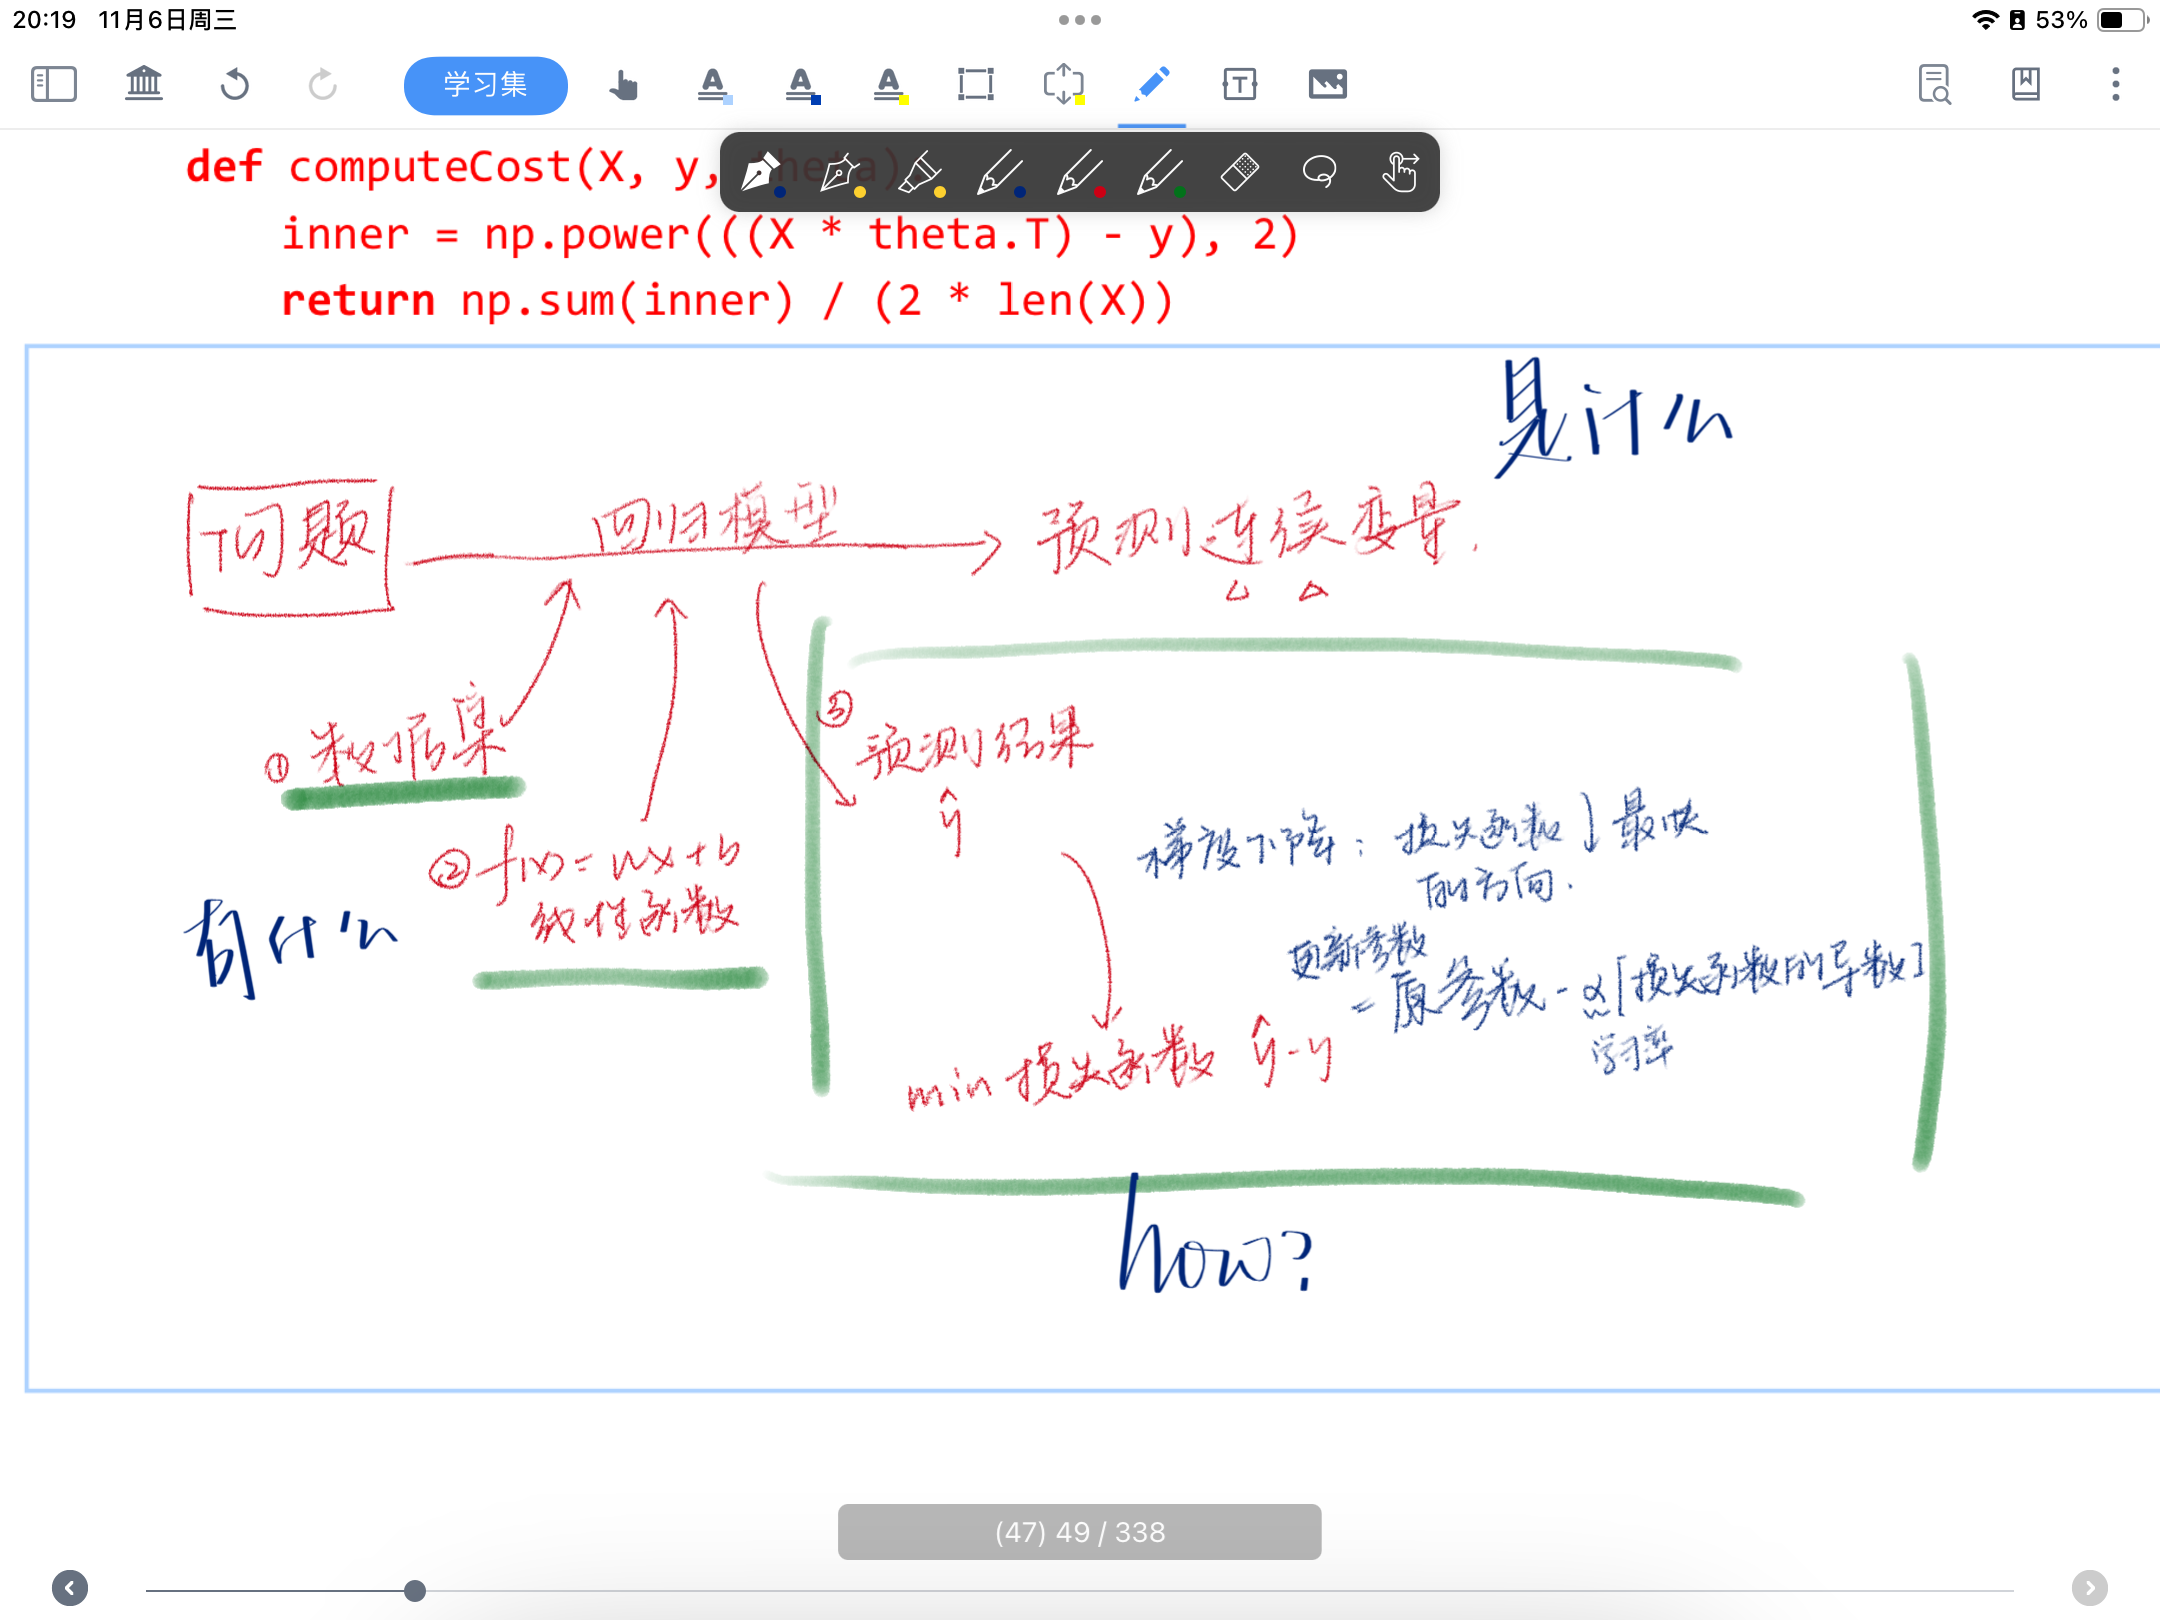 20:19 11月6日周三
53%
学习集
def computeCost(X, y, theta):
inner = np.power(((X * theta.T) - y), 2)
return np.sum(inner) / (2 * len(X))
是什么
问题
回归模型
预测连续变量.
① 数据集
② f(x) = wx + b
线性函数
有什么
③
预测结果
ŷ
梯度下降: 损失函数↓最快
的方向.
更新参数
= 原参数 - α[损失函数的导数]
学习率
min 损失函数 ŷ - y
how?
(47) 49 / 338